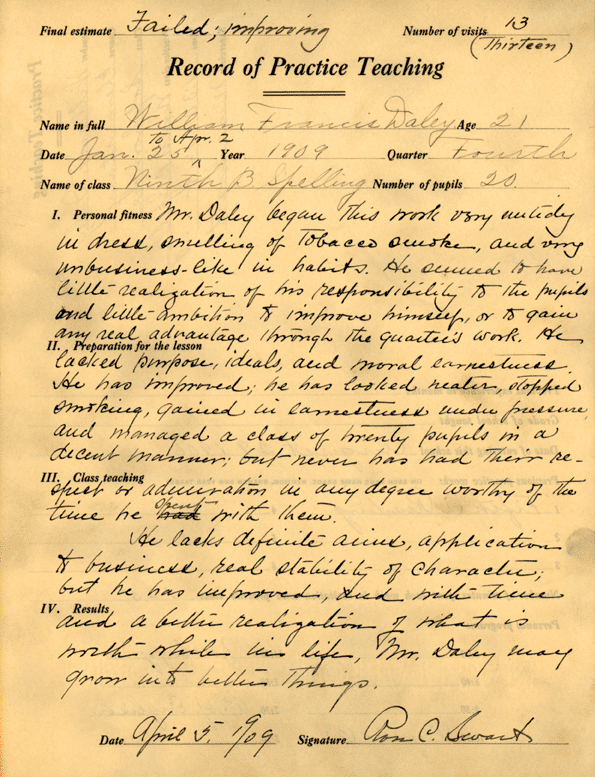 Final estimate Failed; improving Number of visits 13
(Thirteen)
Record of Practice Teaching
Name in full William Francis Daley Age 21
To Apr. 2
Date Jan. 25 ^ Year 1909 Quarter Fourth
Name of class Ninth B Spelling Number of pupils 20
I. Personal fitness Mr. Daley began this work very untidy
in dress, smelling of tobacco smoke, and very
unbusiness-like in habits. He seemed to have
little realization of his responsibility to the pupils
and little ambition to improve himself, or to gain
any real advantage through the quarter's work. He
II. Preparation for the lesson
lacked purpose, ideals, and moral earnestness.
He has improved; he has looked neater, stopped
smoking, gained in earnestness under pressure,
and managed a class of twenty pupils in a
decent manner; but never has had their re-
III. Class teaching
spect or admiration in any degree worthy of the
spent
time he had with them.
He lacks definite aims, application
to business, real stability of character;
but he has improved and with time
IV. Results
and a better realization of what is
worth while in life, Mr. Daley may
grow into better things.
Date April 5, 1909 Signature Rose C. Swart